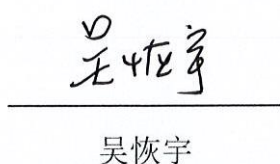 吴恢宇
吴恢宇